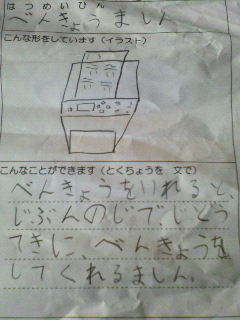 はつめいひん
べんきょうましん
こんな形をしています（イラスト）
こんなことができます（とくちょうを 文で）
べんきょうをいれると、
じぶんのじでじどう
てきに、べんきょうを
してくれるましん。